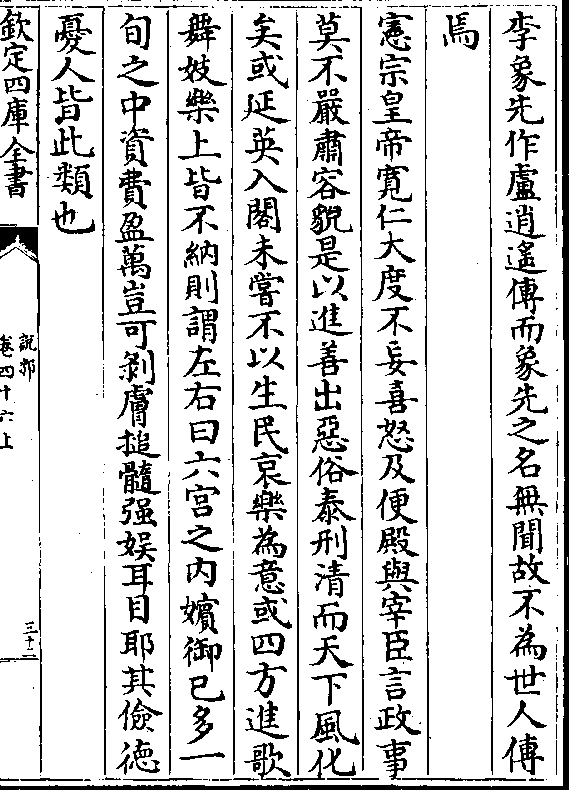 李象先作盧逍遙傳而象先之名無聞故不為世人傳
焉
憲宗皇帝寛仁大度不妄喜怒及便殿與宰臣言政事
莫不嚴肅容貌是以進善出惡俗泰刑清而天下風化
矣或延英入閣未嘗不以生民哀樂為意或四方進歌
舞妓樂上皆不納則謂左右曰六宫之内嬪御已多一
旬之中資費盈萬豈可剝膚搥髓强娱耳目耶其儉德
憂人皆此類也
欽定四庫全書
說郛
卷四十六上
三十二